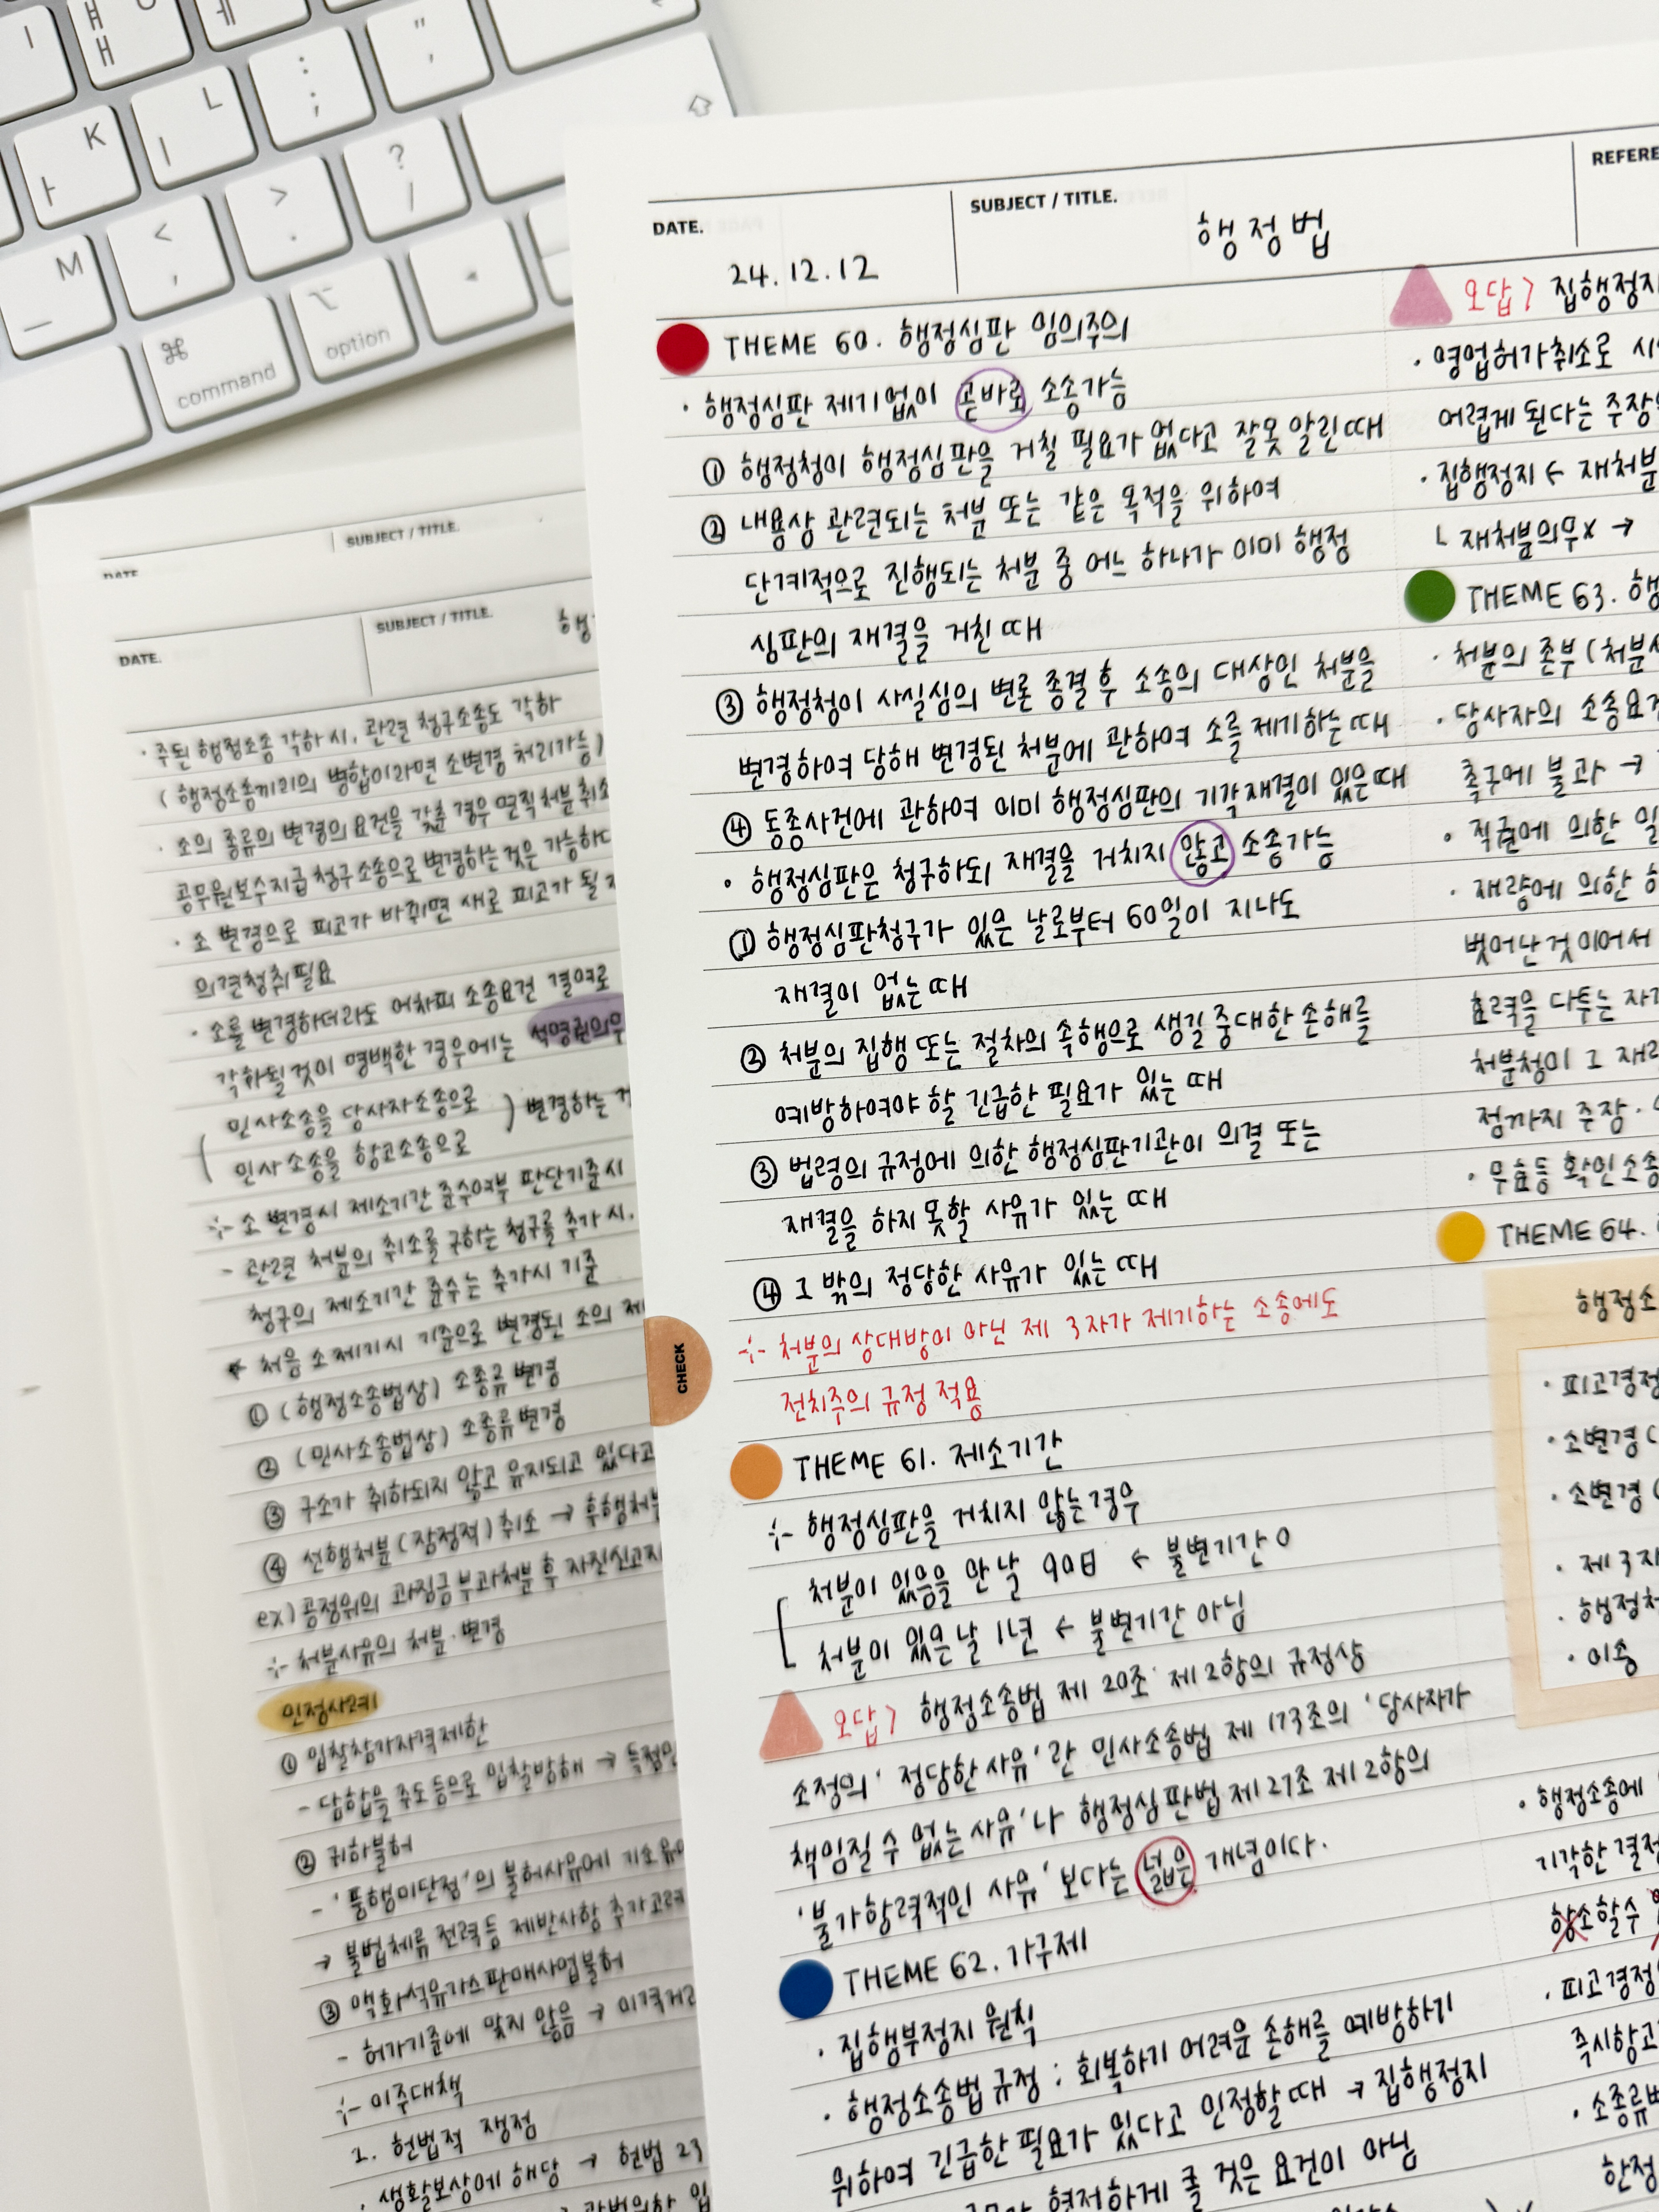 K
L
M
command
option
DATE.
24.12.12
SUBJECT / TITLE.
행정법
REFERE
THEME 60. 행정심판 임의주의
· 행정심판 제기없이 곧바로 소송가능
① 행정청이 행정심판을 거칠 필요가 없다고 잘못 알린때
② 내용상 관련되는 처분 또는 같은 목적을 위하여
단계적으로 진행되는 처분 중 어느 하나가 이미 행정
심판의 재결을 거친 때
③ 행정청이 사실심의 변론 종결 후 소송의 대상인 처분을
변경하여 당해 변경된 처분에 관하여 소를 제기하는 때
④ 동종사건에 관하여 이미 행정심판의 기각재결이 있은때
· 행정심판은 청구하되 재결을 거치지 않고 소송가능
① 행정심판청구가 있은 날로부터 60일이 지나도
재결이 없는 때
② 처분의 집행 또는 절차의 속행으로 생길 중대한 손해를
예방하여야 할 긴급한 필요가 있는 때
③ 법령의 규정에 의한 행정심판기관이 의결 또는
재결을 하지 못할 사유가 있는 때
④ 그 밖의 정당한 사유가 있는 때
※ 처분의 상대방이 아닌 제 3자가 제기하는 소송에도
전치주의 규정 적용
CHECK
THEME 61. 제소기간
※ 행정심판을 거치지 않는 경우
처분이 있음을 안 날 90日 ← 불변기간 O
처분이 있은 날 1년 ← 불변기간 아님
오답> 행정소송법 제 20조 제 2항의 규정상
소정의 '정당한 사유'란 민사소송법 제 173조의 '당사자가
책임질 수 없는 사유'나 행정심판법 제 27조 제 2항의
'불가항력적인 사유' 보다는 넓은 개념이다.
THEME 62. 가구제
· 집행부정지 원칙
· 행정소송법 규정 : 회복하기 어려운 손해를 예방하기
위하여 긴급한 필요가 있다고 인정할 때 → 집행정지
현저하게 클 것은 요건이 아님
오답> 집행정지
· 영업허가취소로
어렵게 된다는 주장
· 집행정지 ← 재처분
└ 재처분의무X →
THEME 63. 행
· 처분의 존부 (처분
· 당사자의 소송요건
촉구에 불과 →
· 직권에 의한
· 재량에 의한
벗어난 것이어서
효력을 다투는
처분청이 그
점까지 주장 ·
· 무효등 확인소송
THEME 64.
행정소
· 피고경정
· 소변경 (
· 소변경 (
· 제 3자
· 행정처
· 이송
· 행정소송에
기각한 결정
항소할수
· 피고경정
즉시항고
· 소종류변
한정
SUBJECT / TITLE.
DATE
DATE.
SUBJECT / TITLE.
행
· 주된 행정소송 각하 시, 관련 청구소송도 각하
( 행정소송끼리의 병합이라면 소변경 처리가능 )
· 소의 종류의 변경의 요건을 갖춘 경우 면직처분 취소
공무원보수지급 청구소송으로 변경하는 것은 가능하다
· 소 변경으로 피고가 바뀌면 새로 피고가 될
의견청취 필요
· 소를 변경하더라도 어차피 소송요건 결여로
각하될 것이 명백한 경우에는 석명권의무
민사소송을 당사자소송으로
민사소송을 항고소송으로
) 변경하는
※ 소 변경시 제소기간 준수여부 판단기준시
- 관련 처분의 취소를 구하는 청구를 추가 시,
청구의 제소기간 준수는 추가시 기준
처음 소제기시 기준으로 변경된 소의
① (행정소송법상) 소종류 변경
② (민사소송법상) 소종류 변경
③ 구소가 취하되지 않고 유지되고 있다고
④ 선행처분 (잠정적) 취소 → 후행처분
ex) 공정위의 과징금 부과처분 후 자진신고
※ 처분사유의 처분·변경
인정사례
① 입찰참가자격제한
- 담합을 주도 등으로 입찰방해 →
② 귀화불허
- '품행미단정'의 불허사유에 기소유예
→ 불법체류 전력 등 제반사항 추가고려
③ 액화석유가스판매사업불허
- 허가기준에 맞지 않음 → 이격거리
※ 이주대책
1. 헌법적 쟁점
· 생활보상에 해당 → 헌법 23